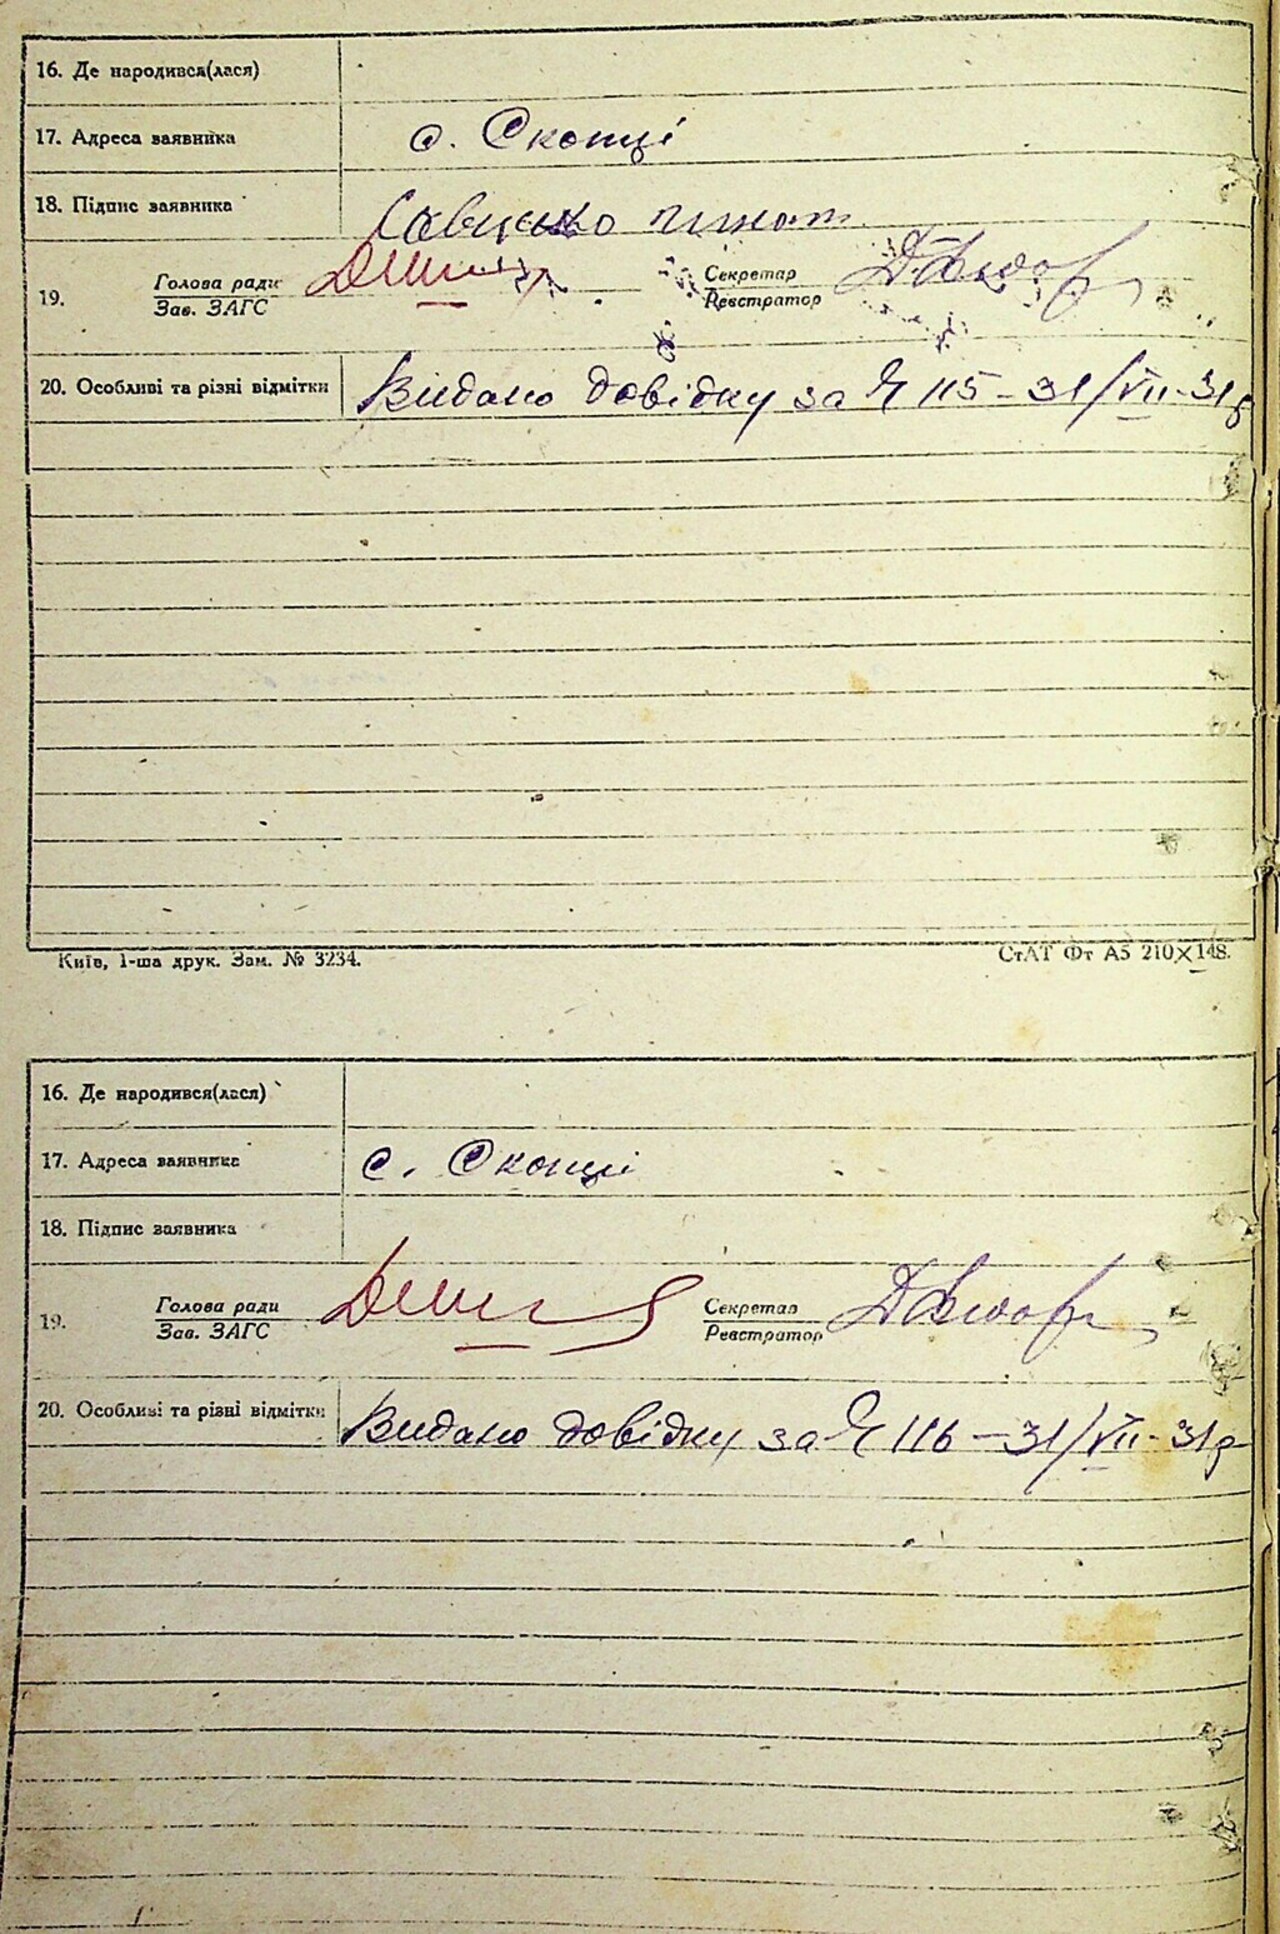 16. Де народився(лася)
17. Адреса заявника с. Скопці
18. Підпис заявника Савченко
19. Голова ради Секретар
Зав. ЗАГС Реєстратор
20. Особливі та різні відмітки Видано довідку за № 115 – 31/VII-31р
Київ, 1-ша друк. Зам. № 3234. СтАТ Фт А5 210×148.
16. Де народився(лася)
17. Адреса заявника с. Скопці
18. Підпис заявника
19. Голова ради Секретар
Зав. ЗАГС Реєстратор
20. Особливі та різні відмітки Видано довідку за № 116 – 31/VII-31р